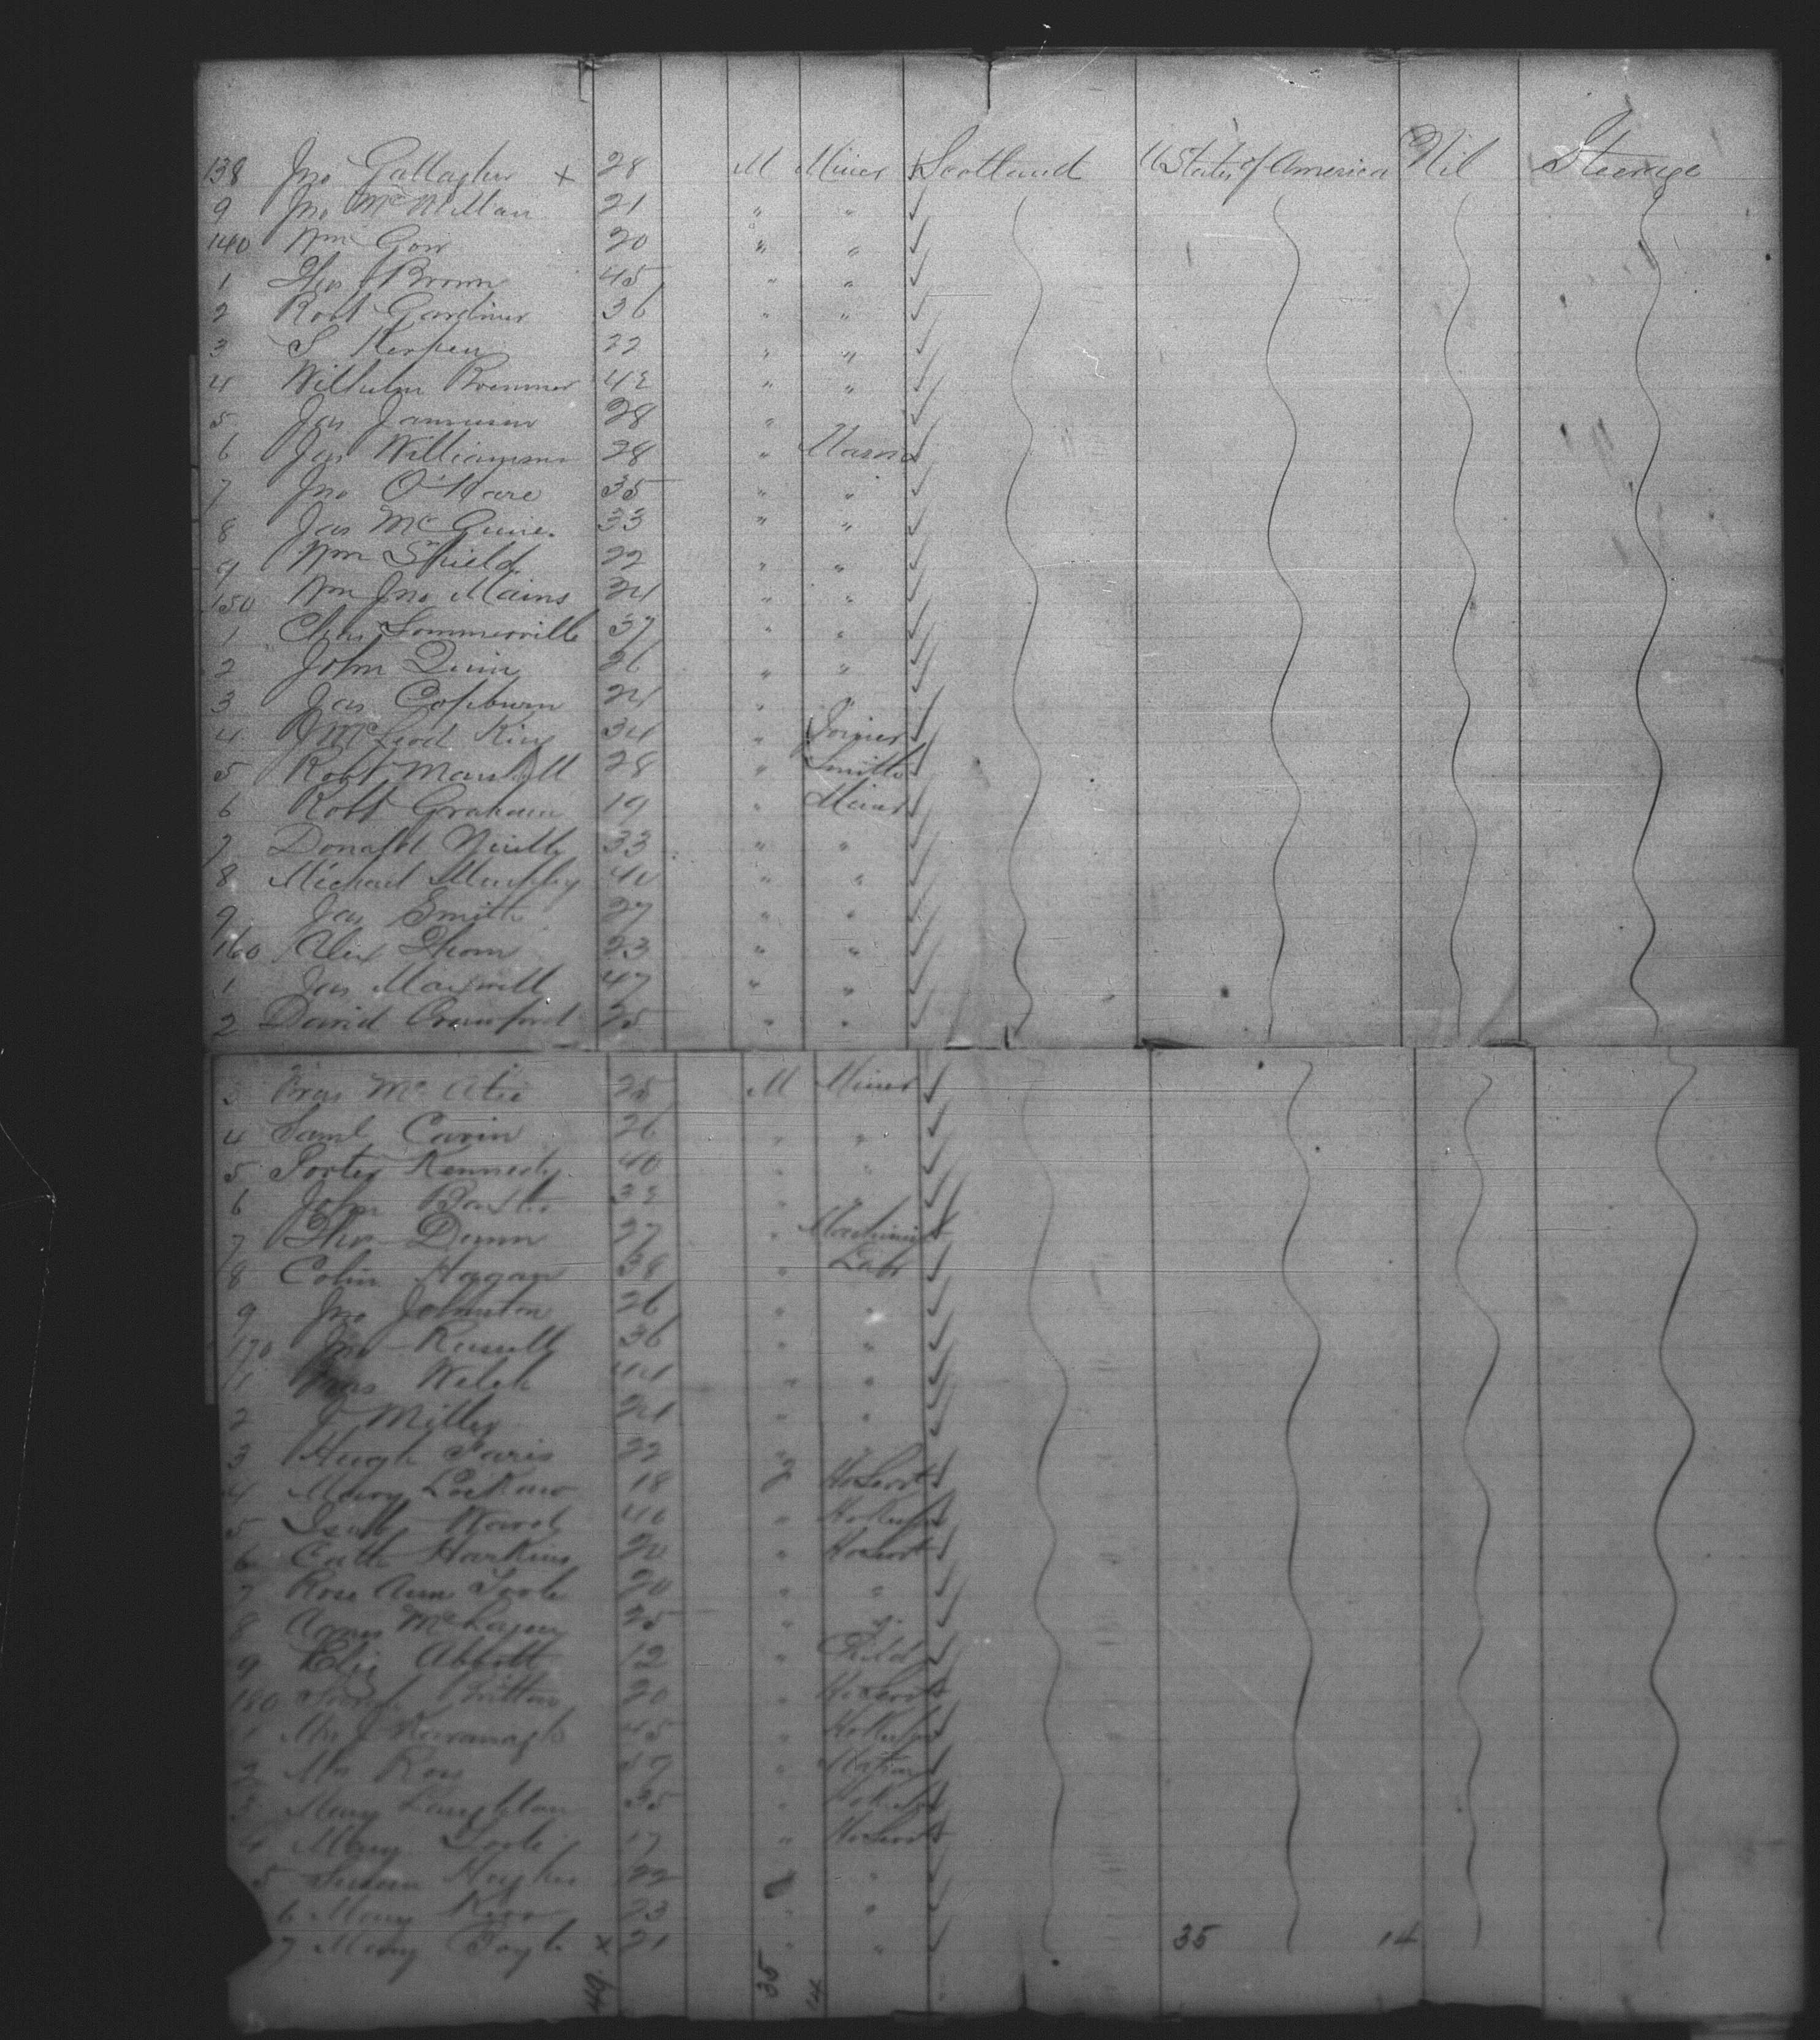 138 Jno Gallagher x 28 M Miner Scotland U States of America Nil Steerage
9 Jno McMillan 21 " "
140 Wm Gow 20 " "
1 Thos Brown 45 " "
2 Robt Gardiner 36 " "
3 S 22 " "
4 Wilhelm 42 " "
5 Jas Jamieson 28 "
6 Jas Williamson 28 " Mason
7 Jno O'Hare 35 " "
8 Jas McGuire 33 " "
9 Wm Shield 22 " "
150 Wm Jno Mains 24 " "
1 Chas Sommerville 37 " "
2 John Quinn 26 " "
3 Jas 24 " "
4 McLeod King 34 " Joiner
5 Robt Marshall 28 " Smith
6 Robt Graham 19 " Miner
7 Donald 33 " "
8 Michael Murphy 40 " "
9 Jas Smith 27 " "
160 Alex Thom 23 " "
1 Jas Maxwell 47 " "
2 David Crawford 25 " "
3 25 M Miner
4 Saml 26 " "
5 Porter Kennedy 40 " "
6 John 32 "
7 Thos Dunn 27 " Machinist
8 Colin Hagan 38 " Labr
9 Jno Johnston 26 " "
170 Jno Russell 36 " "
1 Welsh 44 " "
2 J Miller 24 " "
3 Hugh Paris 22 " "
4 Mary 18 Ho Servt
5 Ward 40 " Ho Keeper
6 Cath Harkins 20 " Ho Servt
7 Rose Ann Toole 20 " "
8 25 " "
9 Eliz Abbott 12 " Child
180 Sarah Britton 20 " Ho Servt
1 Mrs J Kavanagh 45 " Ho Keeper
2 Mrs Ross "
3 Mary 35 " Ho Keeper
4 Mary Toole 17 " Ho Servt
5 Susan Hughes 22 " "
6 Mary 23 " "
7 Mary x 21 " " 35 14
49 35 14